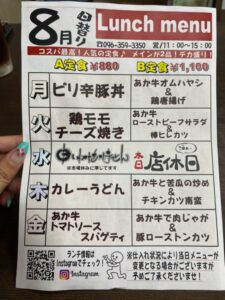 8月
日替り
Lunch menu
☎096-359-3350 営/11:00~15:00
コスパ最高!人気の定食♪ メインが2品!デカ盛り!
A定食¥880
B定食¥1,100
月
ピリ辛豚丼
あか牛オムハヤシ
&
鶏唐揚げ
火
鶏モモ
チーズ焼き
あか牛
ローストビーフサラダ
&
棒ヒレカツ
水
店休日
木
カレーうどん
あか牛と苦瓜の炒め
&
チキンカツ南蛮
金
あか牛
トマトソース
スパゲティ
あか牛で肉じゃが
&
豚ローストンカツ
ランチ情報は
Instagramでチェック!
Instagram
※仕入れ状況により当日メニューが
変更となる場合がございますが
予めご了承くださいませ!